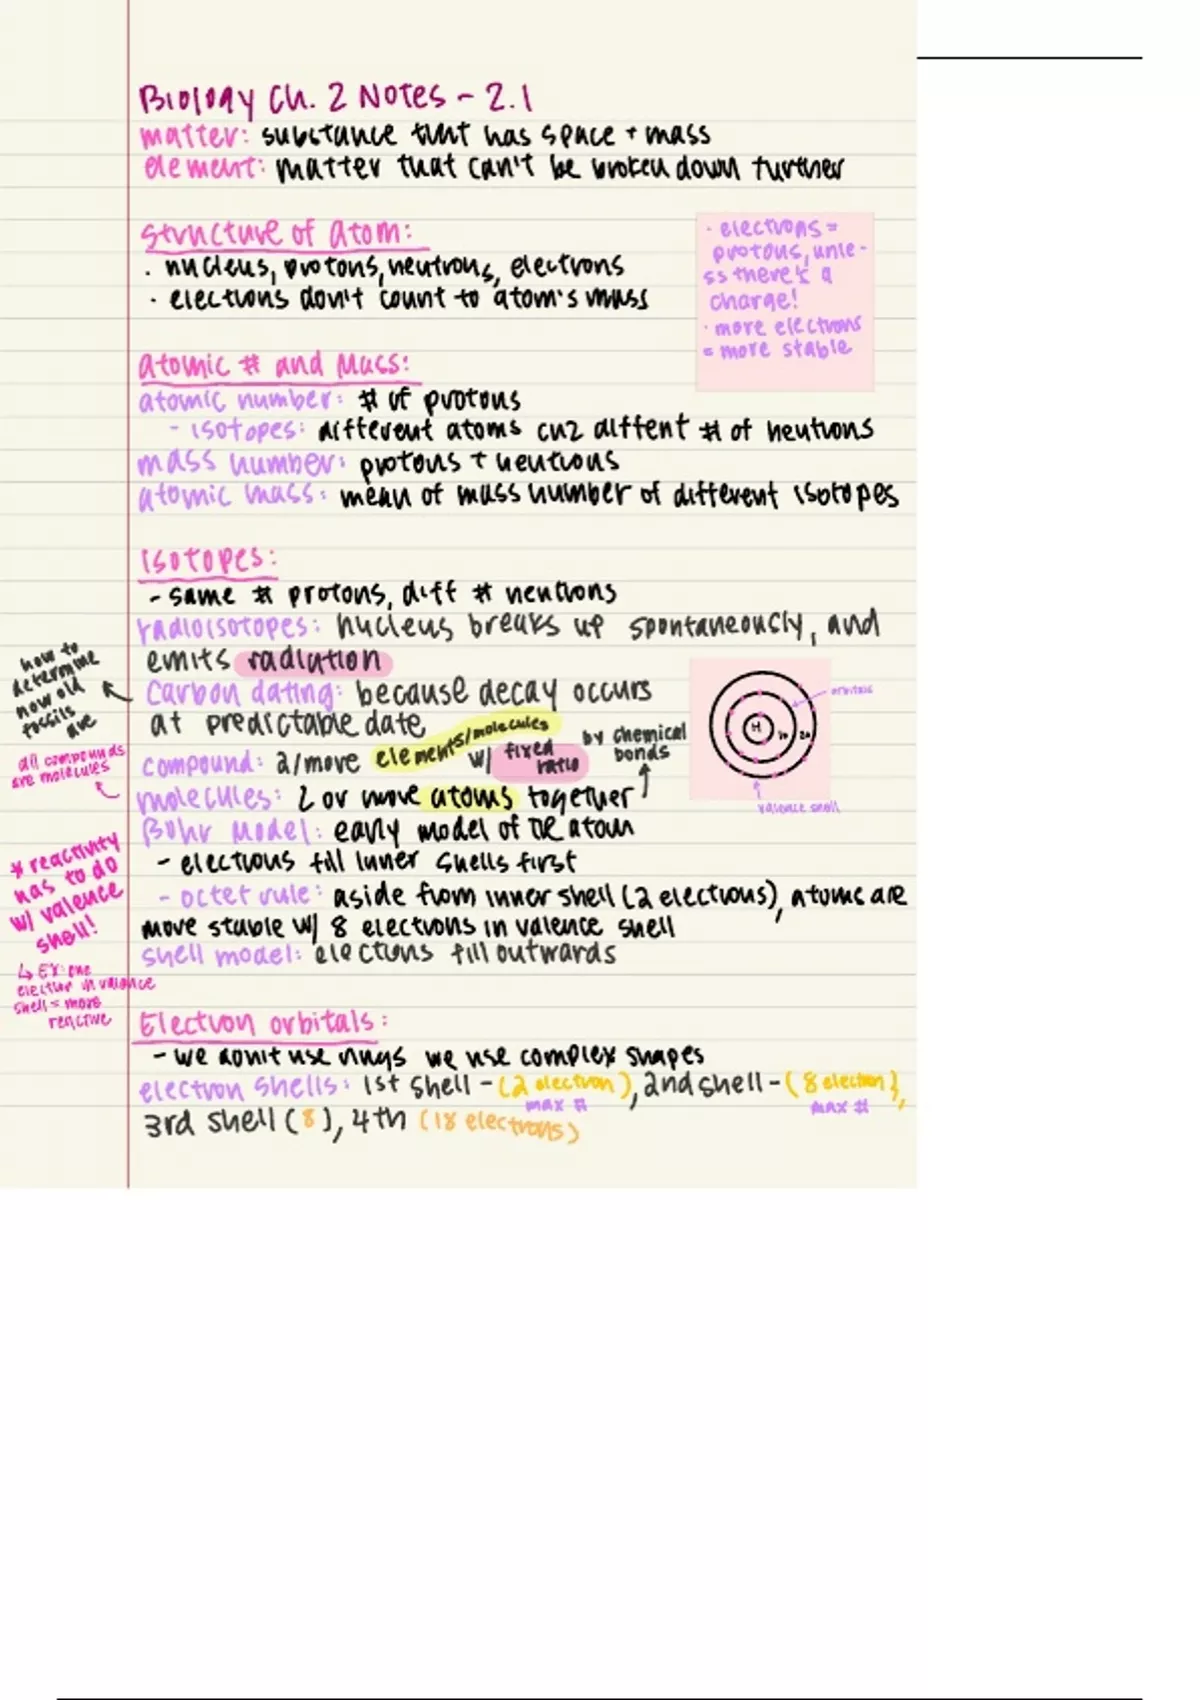 Biology Ch. 2 Notes - 2.1
matter: substance that has space + mass
element: matter that can't be broken down further
structure of atom:
· nucleus, protons, neutrons, electrons
· elections don't count to atom's mass
· electrons =
protons, unle-
ss there's a
charge!
· more electrons
= more stable
atomic # and Mass:
atomic number: # of protons
- isotopes: different atoms diffent # of neutrons
mass number: protons + neutrons
atomic mass: mean of mass number of different isotopes
Isotopes:
- same # protons, diff # neutrons
radioisotopes: nucleus breaks up spontaneously, and
emits radiation
how to
determine
how old
fossils
are
Carbon dating: because decay occurs
at predictable date
compound: 2/more elements/molecules w/ fixed ratio by chemical bonds
all compounds
are molecules
molecules: 2 or more atoms together
H
orbitals
valence shell
Bohr Model: early model of atom
- electrons fill inner shells first
- octet rule: aside from inner shell (2 electrons), atoms are
more stable w/ 8 electrons in valence shell
shell model: elections fill outwards
* reactivity
has to do
w/ valence
shell!
↳ EX: one
electron in valance
shell = more
reactive
Electron orbitals:
- we don't use rings we use complex shapes
electron shells: 1st shell - (2 electron), 2nd shell - (8 electron),
max # max #
3rd shell (8), 4th (18 electrons)